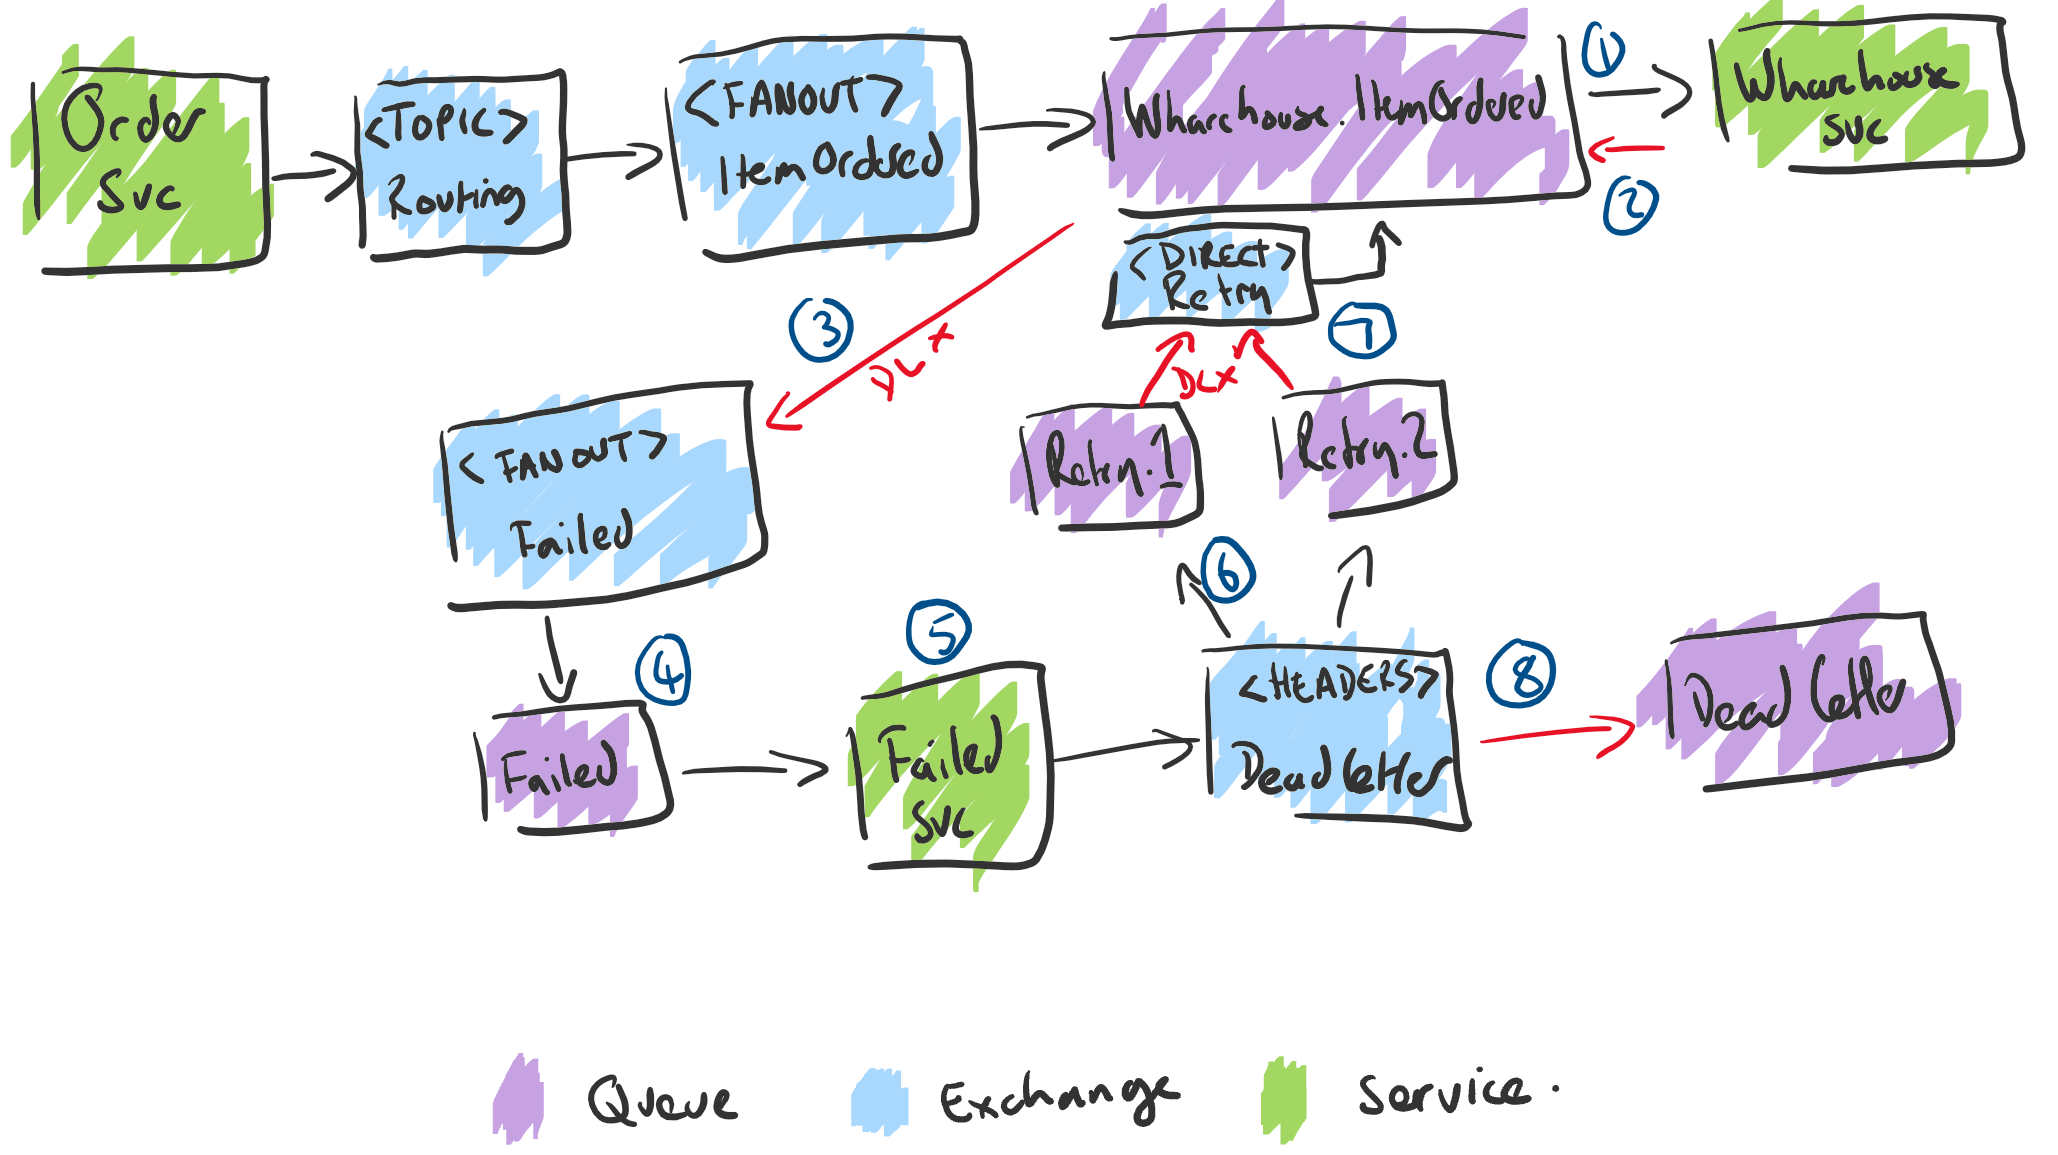 Order
Svc
<TOPIC>
Routing
<FANOUT>
ItemOrdered
Wharehouse.ItemOrdered
1
Wharehouse
svc
2
<DIRECT>
Retry
3
DLX
7
DLX
Retry.1
Retry.2
<FANOUT>
Failed
6
4
Failed
5
Failed
svc
<HEADERS>
Deadletter
8
Dead letter
Queue
Exchange
Service.